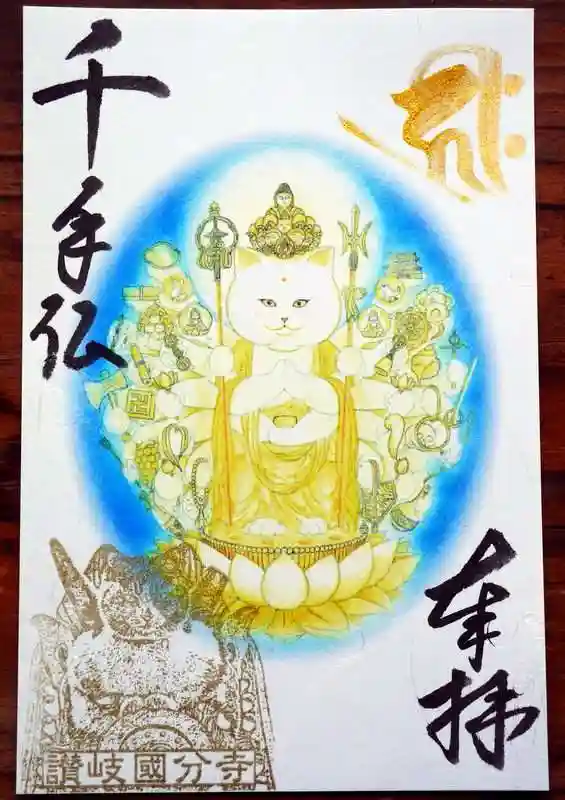 奉拝
千手仏
讃岐國分寺